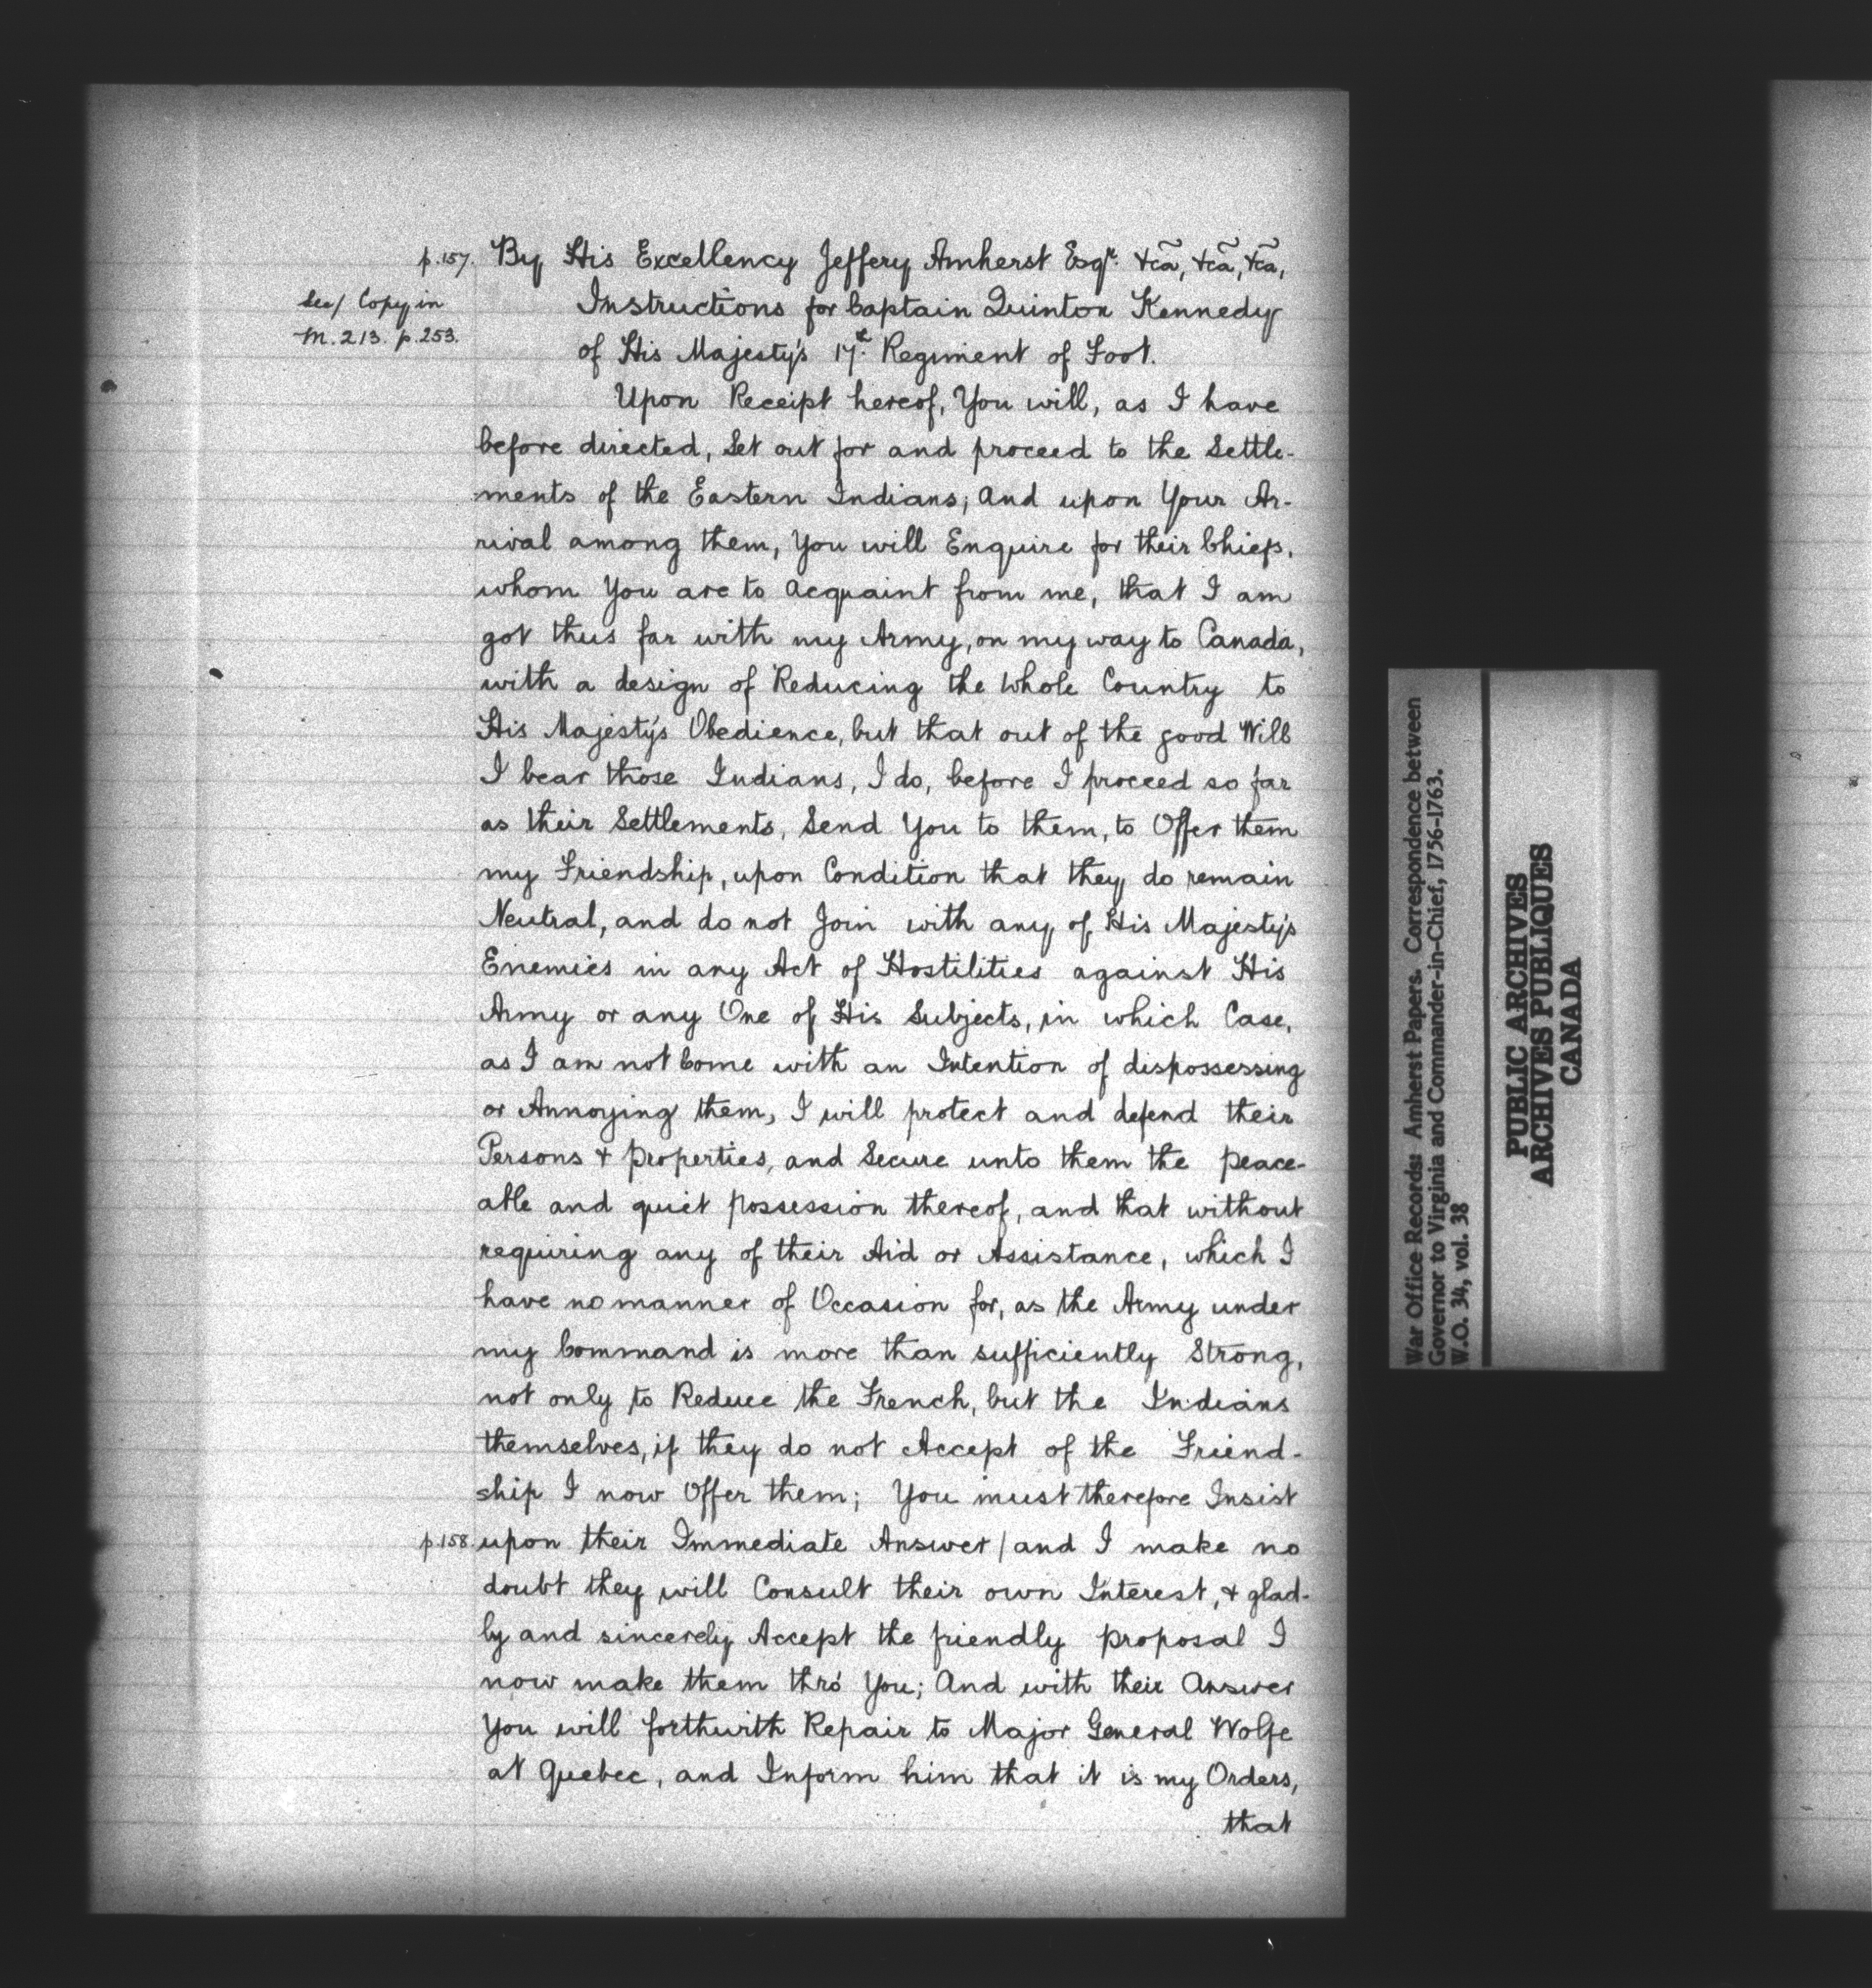 p.157. By His Excellency Jeffery Amherst Esqr. &cã, &cã, &cã,
See/ Copy in
M. 213. p. 253.
Instructions for Captain Quinton Kennedy
of His Majesty's 17th Regiment of Foot.
Upon Receipt hereof, You will, as I have
before directed, Set out for and proceed to the Settle-
ments of the Eastern Indians; And upon Your Ar-
rival among them, You will Enquire for their Chiefs,
whom You are to Acquaint from me, that I am
got thus far with my Army, on my way to Canada,
with a design of Reducing the Whole Country to
His Majesty's Obedience, but that out of the good Will
I bear those Indians, I do, before I proceed so far
as their Settlements, Send You to them, to Offer them
my Friendship, upon Condition that they do remain
Neutral, and do not Join with any of His Majesty's
Enemies in any Act of Hostilities against His
Army or any One of His Subjects, in which Case,
as I am not Come with an Intention of dispossessing
or Annoying them, I will protect and defend their
Persons & Properties, and Secure unto them the peace-
able and quiet possession thereof, and that without
requiring any of their Aid or Assistance, which I
have no manner of Occasion for, as the Army under
my Command is more than sufficiently Strong,
not only to Reduce the French, but the Indians
themselves, if they do not Accept of the Friend-
ship I now Offer them; You must therefore Insist
p.158. upon their Immediate Answer / and I make no
doubt they will Consult their own Interest, & glad-
ly and sincerely Accept the friendly proposal I
now make them thro' You; And with their Answer
You will forthwith Repair to Major General Wolfe
at Quebec, and Inform him that it is my Orders,
that
War Office Records: Amherst Papers. Correspondence between
Governor to Virginia and Commander-in-Chief, 1756-1763.
W.O. 34, vol. 38
PUBLIC ARCHIVES
ARCHIVES PUBLIQUES
CANADA